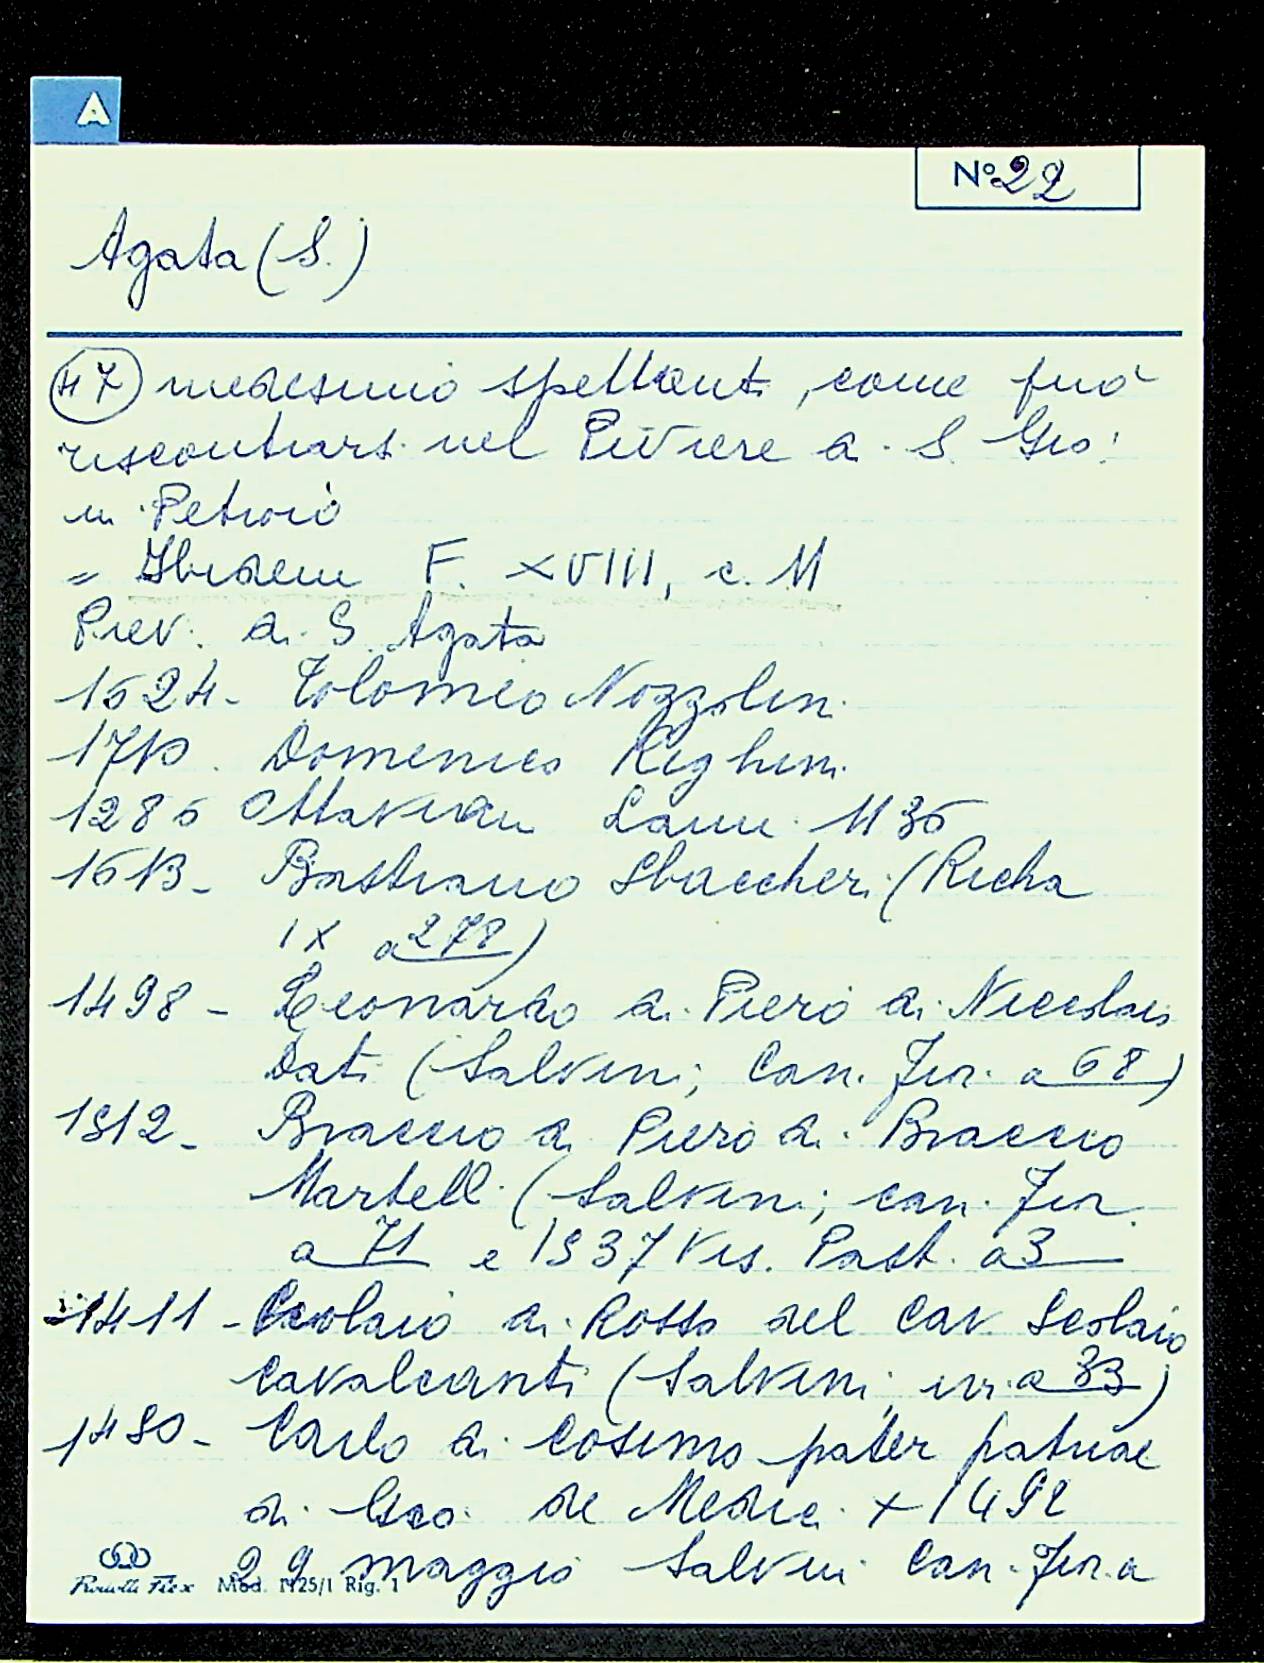 A
N° 22
Agata (S.)
47) medesimo spettanti, come può
riscontrarsi nel Piviere di S. Gio:
in Petroio
= Ibidem F. XVIII, c. 11
Piev. di S. Agata
1624 - Tolomeo Nozzolini
1710. Domenico Righini
1286 Ottavian Lami 1136
1613 - Bastiano Sbaccheri (Richa
IX a 278)
1498 - Leonardo di Piero di Niccolaio
Dati (Salvini; Can. Fior. a 68)
1512 - Braccio di Piero di Braccio
Martelli (Salvini; can. Fior.
a 71 e 1537 Vis. Past. a 3
1411 - Scolaio di Rosso del Cav Scolaio
Cavalcanti (Salvini; ivi a 33)
1450 - Carlo di Cosimo pater patriae
di Gio. de Medici + 1492
29 maggio Salvini Can. Fior. a
Mod. 1125/1 Rig. 1